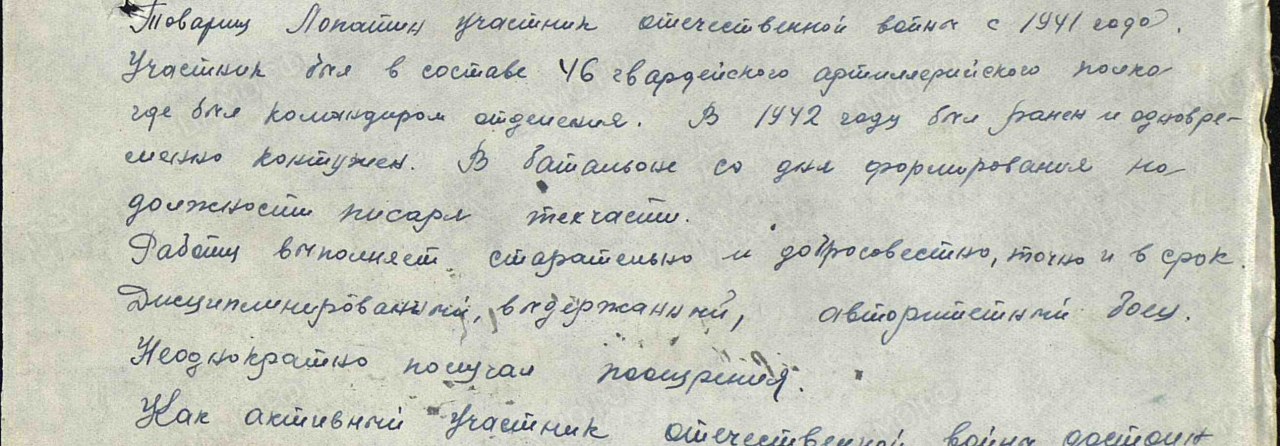 Товарищ Лопатин участник отечественной войны с 1941 года.
Участник был в составе 46 гвардейского артиллерийского полка
где был командиром отделения. В 1942 году был ранен и одновре-
менно контужен. В батальоне со дня формирования на
должности писаря техчасти.
Работу выполняет старательно и добросовестно, точно и в срок.
Дисциплинированный, выдержанный, авторитетный боец.
Неоднократно получал поощрения.
Как активный участник отечественной войны достоин